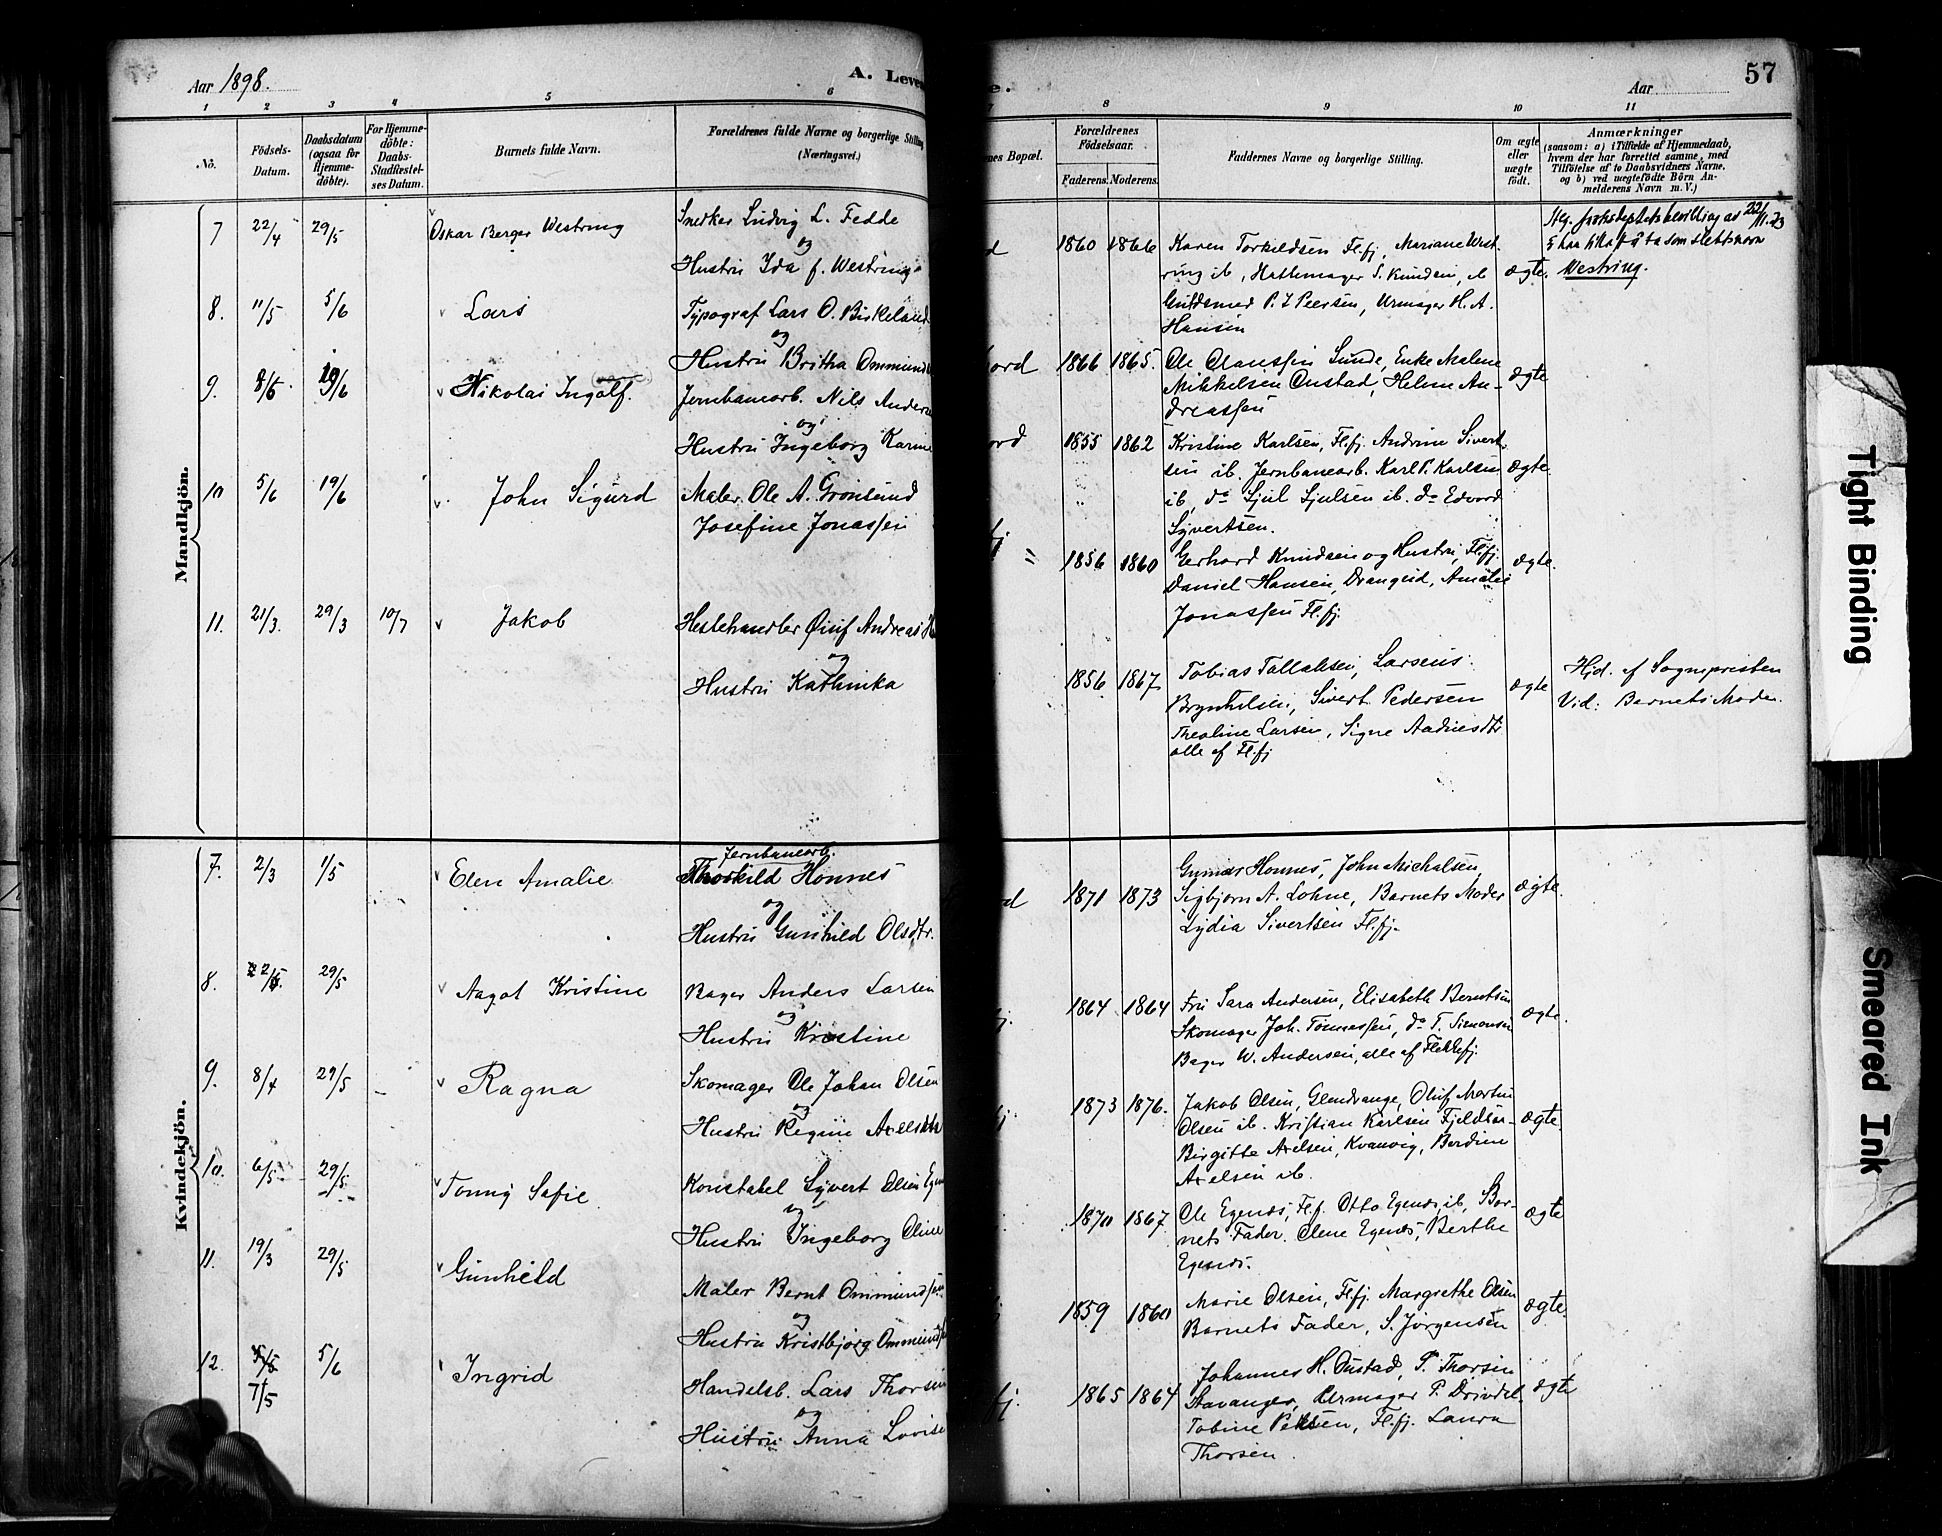 Aar 1898.
A. Leven
e.
Aar
57
1 2 3 4 5 6 7 8 9 10 11
No.
Födsels-
Datum.
Daabsdatum
(ogsaa for
Hjemme-
döbte).
For Hjemme-
döbte:
Daabs-
Stadfæstel-
ses Datum.
Barnets fulde Navn.
Forældrenes fulde Navne og borgerlige Stilling
(Næringsvei.)
nes Bopæl.
Forældrenes
Födselsaar.
Faderens. Moderens.
Faddernes Navne og borgerlige Stilling.
Om ægte
eller
uægte
födt.
Anmærkninger
(saasom: a) i Tilfælde af Hjemmedaab,
hvem der har forrettet samme, med
Tilföielse af to Daabsvidners Navne,
og b) ved uægtefödte Börn An-
melderens Navn m. V.)
Mandkjön.
7 22/4 29/5 Oskar Berger Westring
Snedker Ludvig L. Fedde
og
Hustru Ida f. Westring
d 1860 1866
Karen Torkildsen Fl.fj, Mariane West-
ring ib, Hattemager S. Knudsen, ib
Guldsmed P. I. Peersen, Urmager H. A.
Hansen
ægte.
22/11.23
ta som slektsnavn
Westring.
8. 11/5 5/6 Lars
Typograf Lars O. Birkeland
og
Hustru Britha Ommund
ord 1866 1865.
Ole Olaussen Sunde, Enke Malene
Mikkelsen Oustad, Helene An-
dreassen
ægte
9. 8/5 19/6 Nikolai Ingolf.
Jernbanearb. Nils Anders
og
Hustru Ingeborg Karine
ord 1855 1862
Kristine Karlsen, Fl.fj. Andrine Sivert-
sen ib. Jernbanearb. Karl P. Karlsen
ib, do Sjul Sjulsen ib. do Edvard
Syvertsen.
ægte.
10 5/6 19/6 John Sigurd
Maler Ole A. Grönsund
Josefine Jonassen
fj = 1856 1860
Gerhard Knudsen og Hustru, Fl.fj.
Daniel Hansen, Drangeid, Amalie
Jonassen Fl.fj.
ægte.
11. 21/3. 29/3 10/7 Jakob
Hestehandler Oluf Andreas H
og
Hustru Kathinka
1856 1867
Tobias Tallaksen, Larsens
Brynhilsen, Sivert Pedersen
Theoline Larsen, Signe Aadnesdtr
alle af Fl.fj
ægte
Hjd. af Sognepresten
Vid: Barnets Moder.
Kvindekjön.
7. 2/3 1/5 Elen Amalie
Jernbanearb.
Thorkild Honnes
og
Hustru Gunhild Olsdtr.
d 1871 1873
Gunnar Honnes, John Michalsen,
Sigbjorn A. Lohne, Barnets Moder
Lydia Sivertsen Fl.fj.
ægte.
8. 29/5 Aagot Kristine
Bager Anders Larsen
og
Hustru Kristine
j. 1864 1864
Fru Sara Andersen, Elisabeth Berntsen
Skomager Joh. Tönnessen, do T. Simonsen
Bager W. Andersen, alle af Flekkefj.
ægte.
9. 8/4 29/5 Ragna
Skomager Ole Johan Olsen
og
Hustru Regine Axelsdtr
j. 1873 1876.
Jakob Olsen, Glendrange, Oluf Martin
Olsen ib. Kristian Karlsen Fjeldsæ-
Birgitte Axelsen, Kvanvig, Berdine
Axelsen ib.
ægte.
10. 6/5 29/5 Tonny Sofie
Konstabel Syvert Olsen Egen
og
Hustru Ingeborg Oline
1870 1867
Ole Egenæs, Fl.fj. Otto Egenæs ib, Bar-
nets Fader. Olene Egenæs, Berthe
Egenæs.
ægte
11. 19/3 29/5 Gunhild
Maler Bernt Ommundsen
og
Hustru Kristbjörg Ommunds
1859 1860
Marie Olsen, Fl.fj. Margrethe Olsen
Barnets Fader, S. Jörgensen
ægte.
12. 7/5 5/6 Ingrid
Handelsb. Lars Thorsen
og
Hustru Anna Lovise
fj. 1865 1864
Johannes H. Oustad, T. Thorsen
Stavanger, Urmager P. Drivdal
Tobine Petersen, Fl.fj. Laura
Thorsen.
ægte
Tight Binding
Smeared Ink